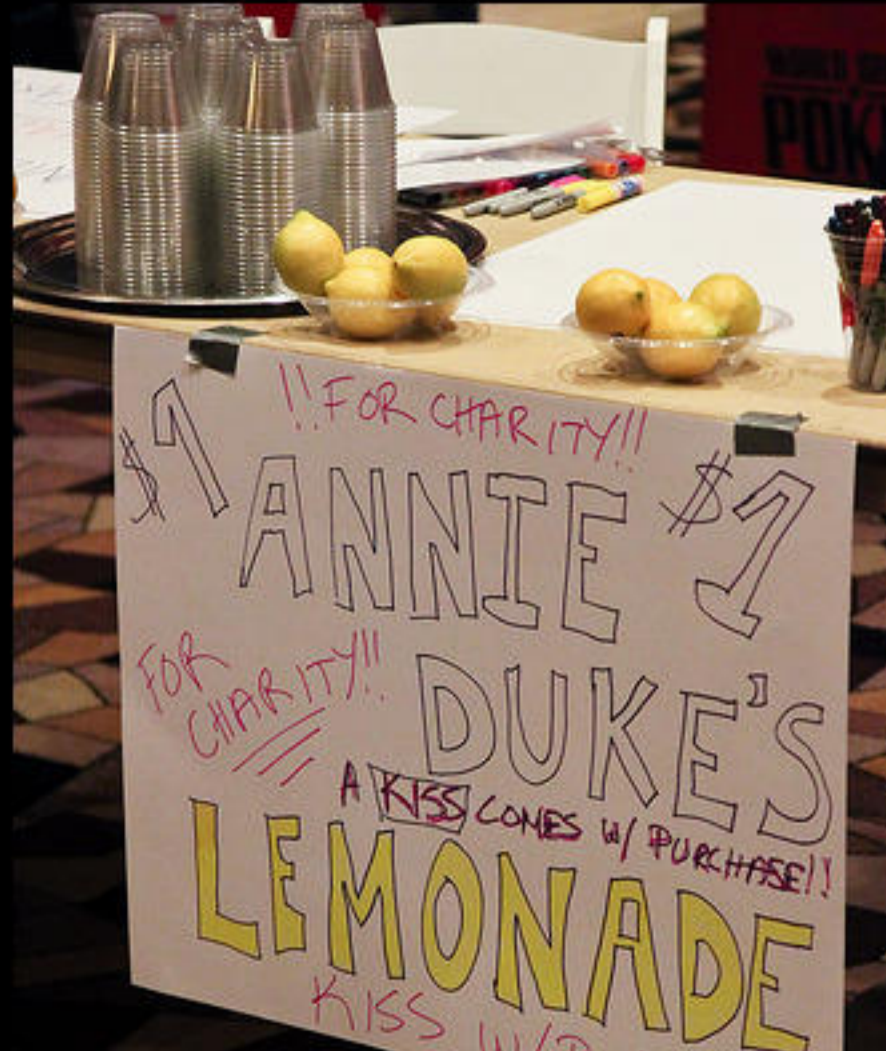 WORLD
POK
!!FOR CHARITY!!
$1 ANNIE $1
FOR CHARITY!!
DUKE'S
A KISS COMES W/ PURCHASE!!
LEMONADE
KISS W/